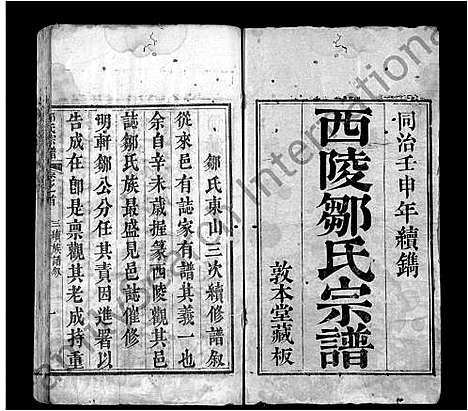 同治壬申年續鐫
西陵鄒氏宗譜
敦本堂藏板
鄒氏東山三次續修譜叙
從來邑有誌家有譜其義一也
余自辛未歲握篆西陵觀其邑
誌鄒氏族最盛見邑誌催修
明軒鄒公分任其責因進署以
告成在卽是稟觀其老成持重
三續族譜叙
一